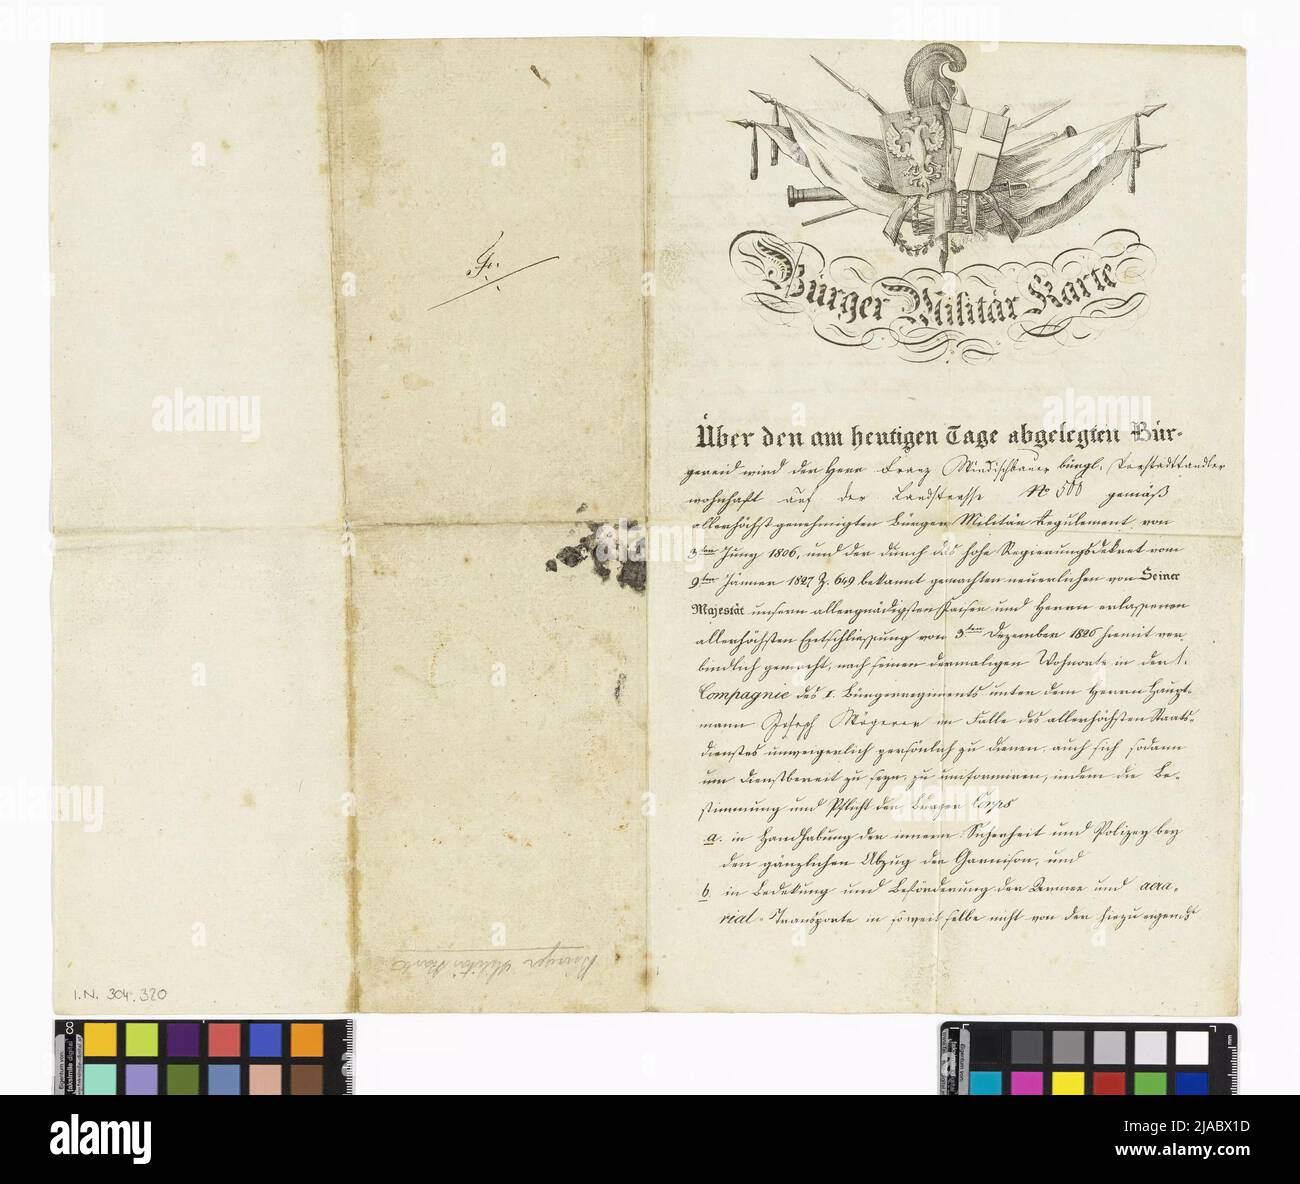 Bürger Militär Karte
Über den am heutigen Tage abgelegten Bür-
gereid wird der Herr Franz Windischbauer bürgl. Vorstadthandler
wohnhaft auf der Landstrasse No 500 gemäß
allerhöchst genehmigten Bürger Militär Regulement von
3ten Juny 1806, und der durch das hohe Regierungsdekret vom
9ten Jänner 1827 Z. 649 bekannt gemachten neuerlichen von Seiner
Majestät unsern allergnädigsten Kaiser und Herrn erlassenen
allerhöchsten Entschliessung vom 3ten Dezember 1826 hiemit ver-
bindlich gemacht, nach seinen dermaligen Wohnorte in der 1.
Compagnie des 1. Bürgerregiments unter dem Herrn Haupt-
mann Joseph Mögerer im Falle des allerhöchsten Staats-
dienstes unweigerlich persönlich zu dienen, auch sich sodann
um dienstbereit zu seyn, zu uniformiren, indem die Be-
stimmung und Pflicht der Bürger Corps
a. in Handhabung der innern Sicherheit und Polizey bey
den gänzlichen Abzug der Garnison, und
b. in Bedekung und Beförderung der Armee und aera-
rial-Transporte in soweit selbe nicht von der hiezu eigends
F.
Bürger Militär Karte
I.N. 304.320
alamy
Image ID: 2JABX1D
www.alamy.com